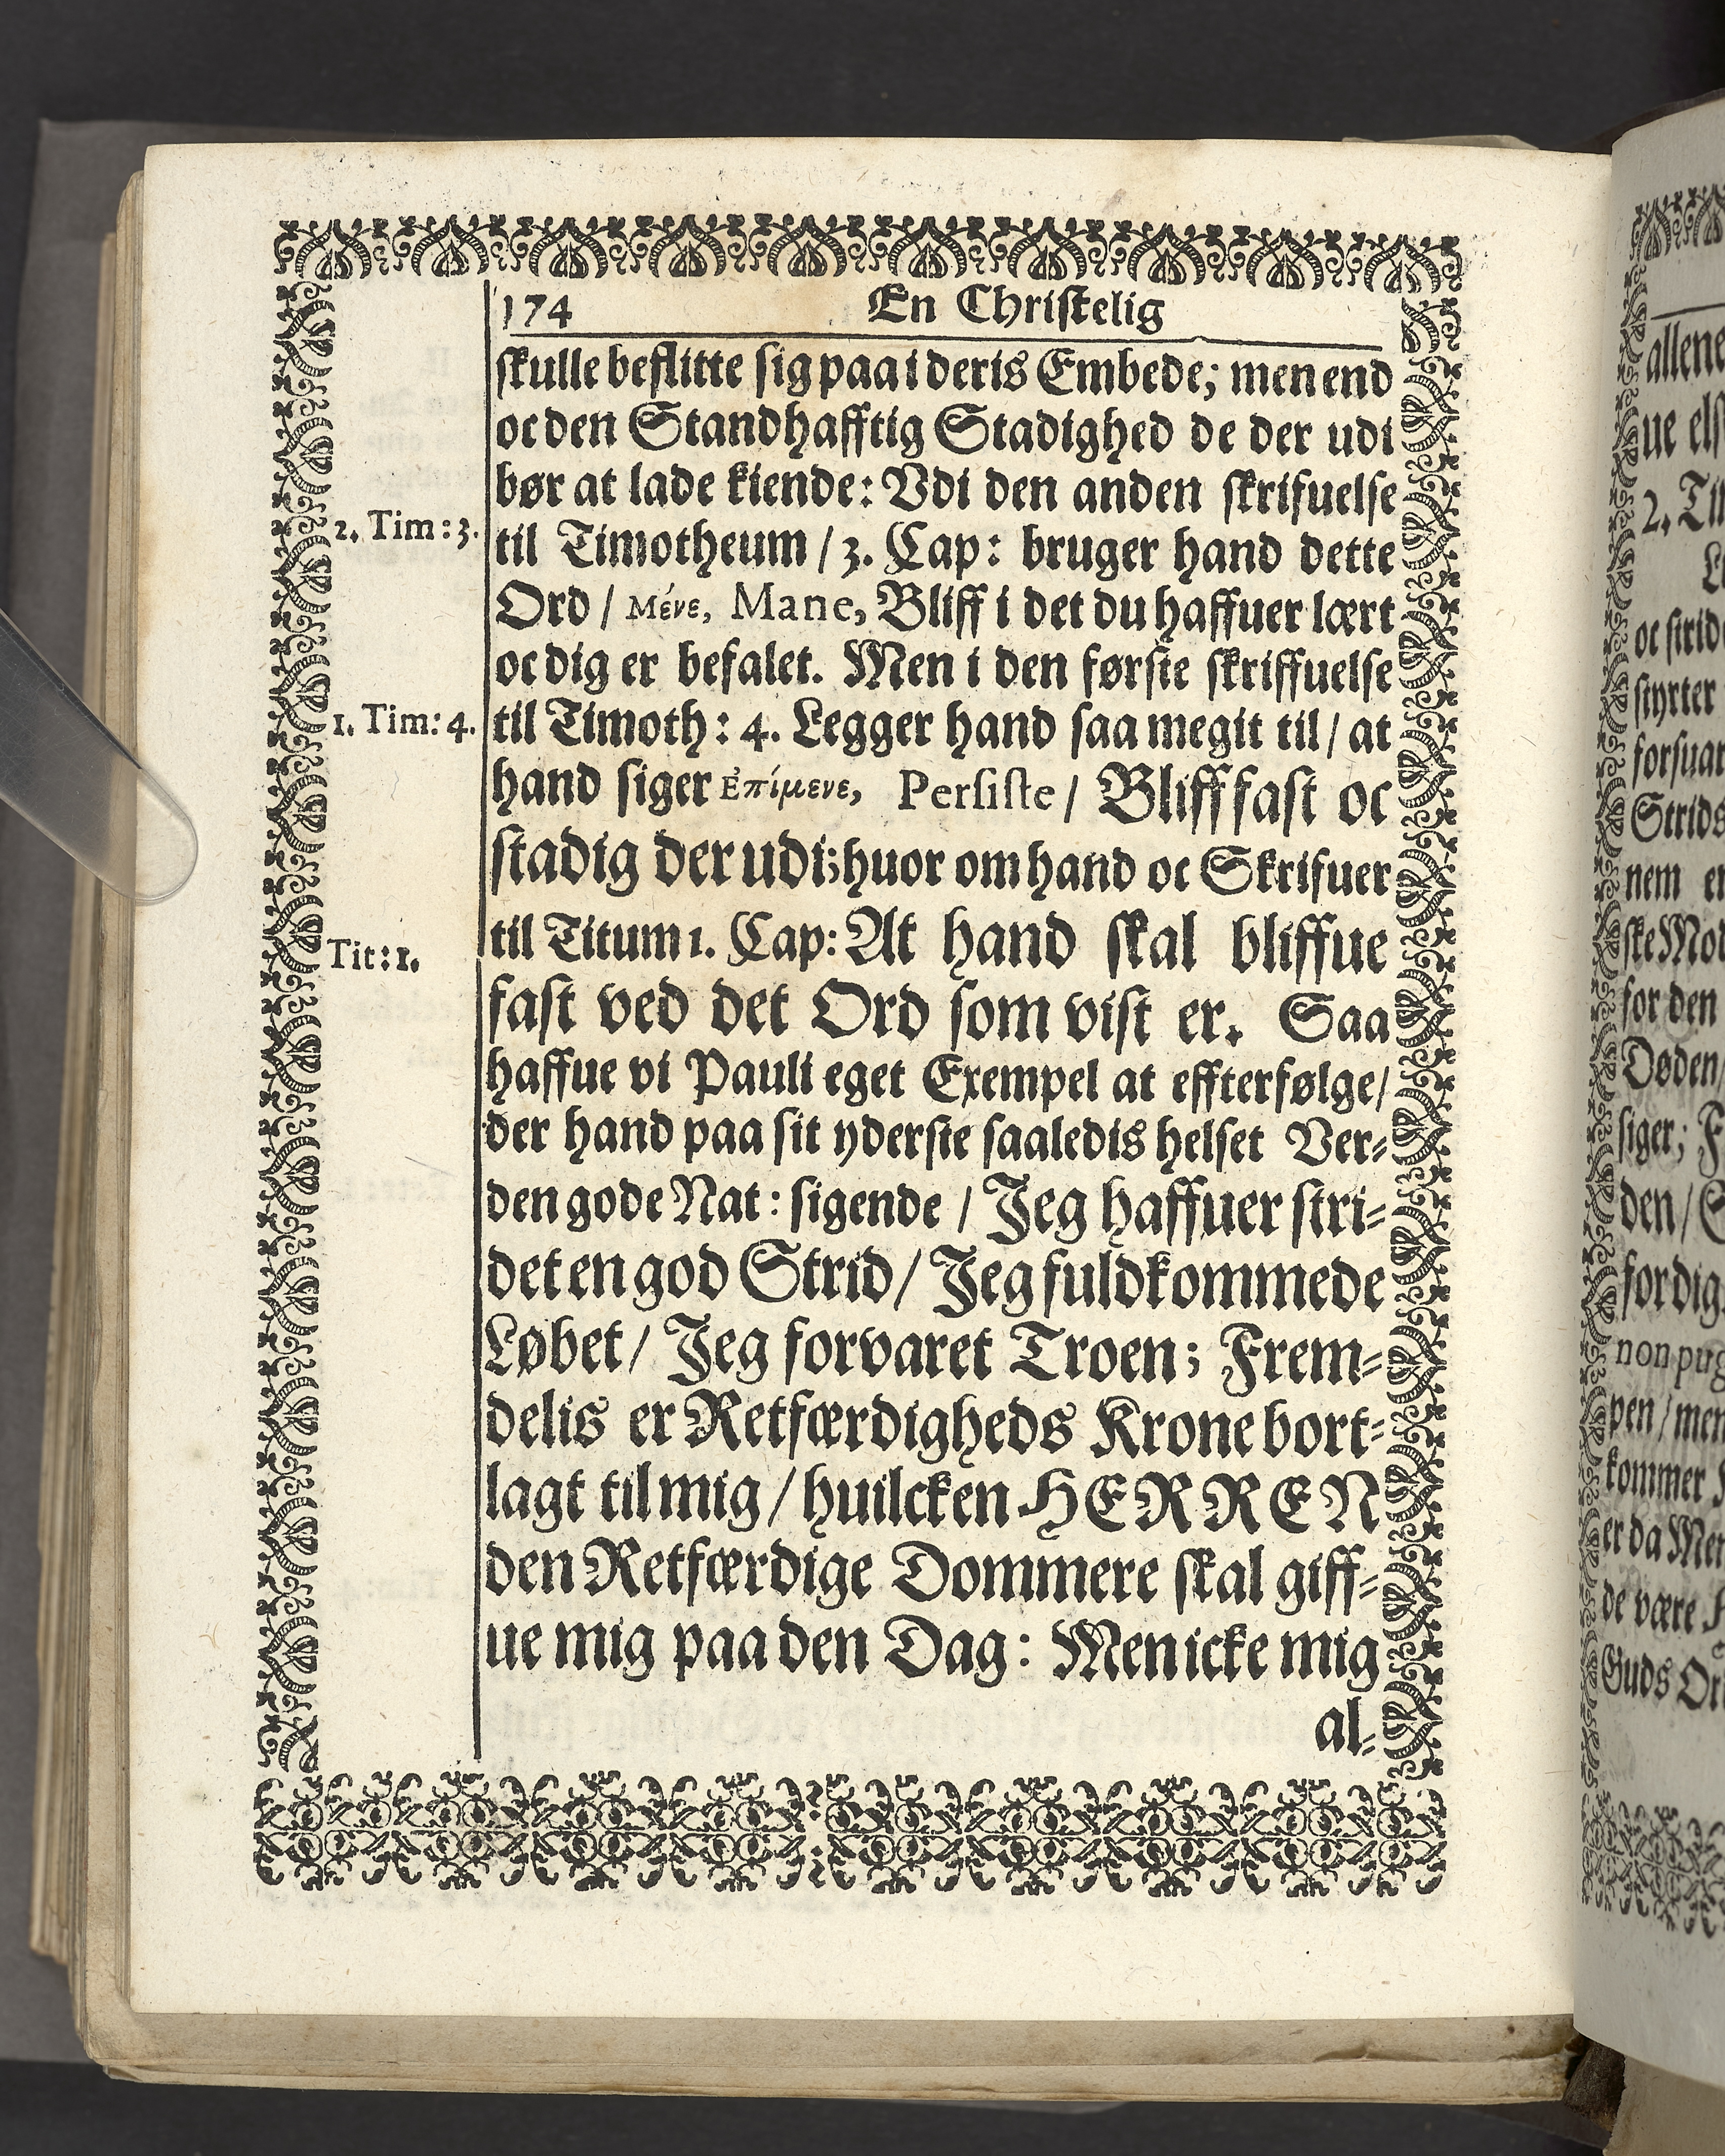 174 En Christelig
skulle beflitte sig paa i deris Embede; men end
oc den Standhafftig Stadighed de der udi
bør at lade kiende: Vdi den anden skrifuelse
2. Tim: 3.
til Timotheum / 3. Cap: bruger hand dette
Ord / Μένε, Mane, Bliff i det du haffuer lært
oc dig er befalet. Men i den første skriffuelse
1. Tim: 4.
til Timoth: 4. Legger hand saa megit til / at
hand siger Ἐπίμενε, Persiste / Bliff fast oc
stadig der udi; huor om hand oc Skrifuer
Tit: 1.
til Titum 1. Cap: At hand skal bliffue
fast ved det Ord som vist er. Saa
haffue vi Pauli eget Exempel at effterfølge /
der hand paa sit yderste saaledis helset Ver-
den gode Nat: sigende / Jeg haffuer stri-
det en god Strid / Jeg fuldkommede
Løbet / Jeg forvaret Troen; Frem-
delis er Retfærdigheds Krone bort-
lagt til mig / huilcken HERREN
den Retfærdige Dommere skal giff-
ue mig paa den Dag: Men icke mig
al-
allene
2. Ti
oc strid
styrter
Strids
nem
for den
Døden /
siger;
den /
for dig
non
pen / men
kommer
er da
de være
Guds